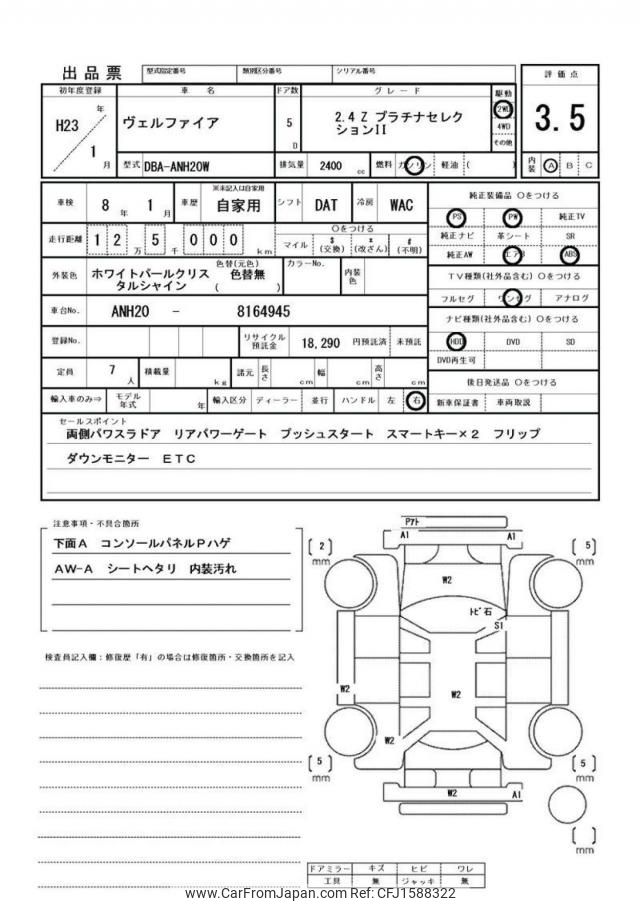 出品票
型式指定番号 類別区分番号 シリアル番号
評価点
3.5
内装 A B C
初年度登録 車名 ドア数 グレード 駆動
H23 年
1 月
ヴェルファイア
5 D
2.4 Z プラチナセレク
ションII
2WD
4WD
その他
型式 DBA-ANH20W 排気量 2400 cc 燃料 ガソリン 軽油 ( )
車検 8 年 1 月 車歴 ※未記入は自家用 自家用 シフト DAT 冷房 WAC
走行距離 1 2 万 5 千 0 0 0 km
〇をつける
マイル $ (交換) * (改ざん) # (不明)
外装色 ホワイトパールクリス
タルシャイン
色替(元色)
色替無
( )
カラーNo. 内装色
車台No. ANH20 - 8164945
登録No. リサイクル預託金 18,290 円預託済 未預託
定員 7 人 積載量 kg 諸元 長さ cm 幅 cm 高さ cm
輸入車のみ⇒ モデル年式 年 輸入区分 ディーラー 並行 ハンドル 左 右
純正装備品 〇をつける
PS PW 純正TV
純正ナビ 革シート SR
純正AW エアB ABS
TV種類(社外品含む) 〇をつける
フルセグ ワンセグ アナログ
ナビ種類(社外品含む) 〇をつける
HDD DVD SD
DVD再生可
後日発送品 〇をつける
新車保証書 車両取説
セールスポイント
両側パワスラドア リアパワーゲート プッシュスタート スマートキー×2 フリップ
ダウンモニター ETC
注意事項・不具合箇所
下面A コンソールパネルPハゲ
AW-A シートヘタリ 内装汚れ
検査員記入欄:修復歴「有」の場合は修復箇所・交換箇所を記入
Pｱﾄ
A1 A1
[2] mm
[5] mm
W2
ﾄﾋﾞ石
S1
W2
W2
W2
[5] mm
[5] mm
W2 A1
[ ] mm
ドアミラー キズ ヒビ ワレ
工具 無 ジャッキ 無
www.CarFromJapan.com Ref: CFJ1588322